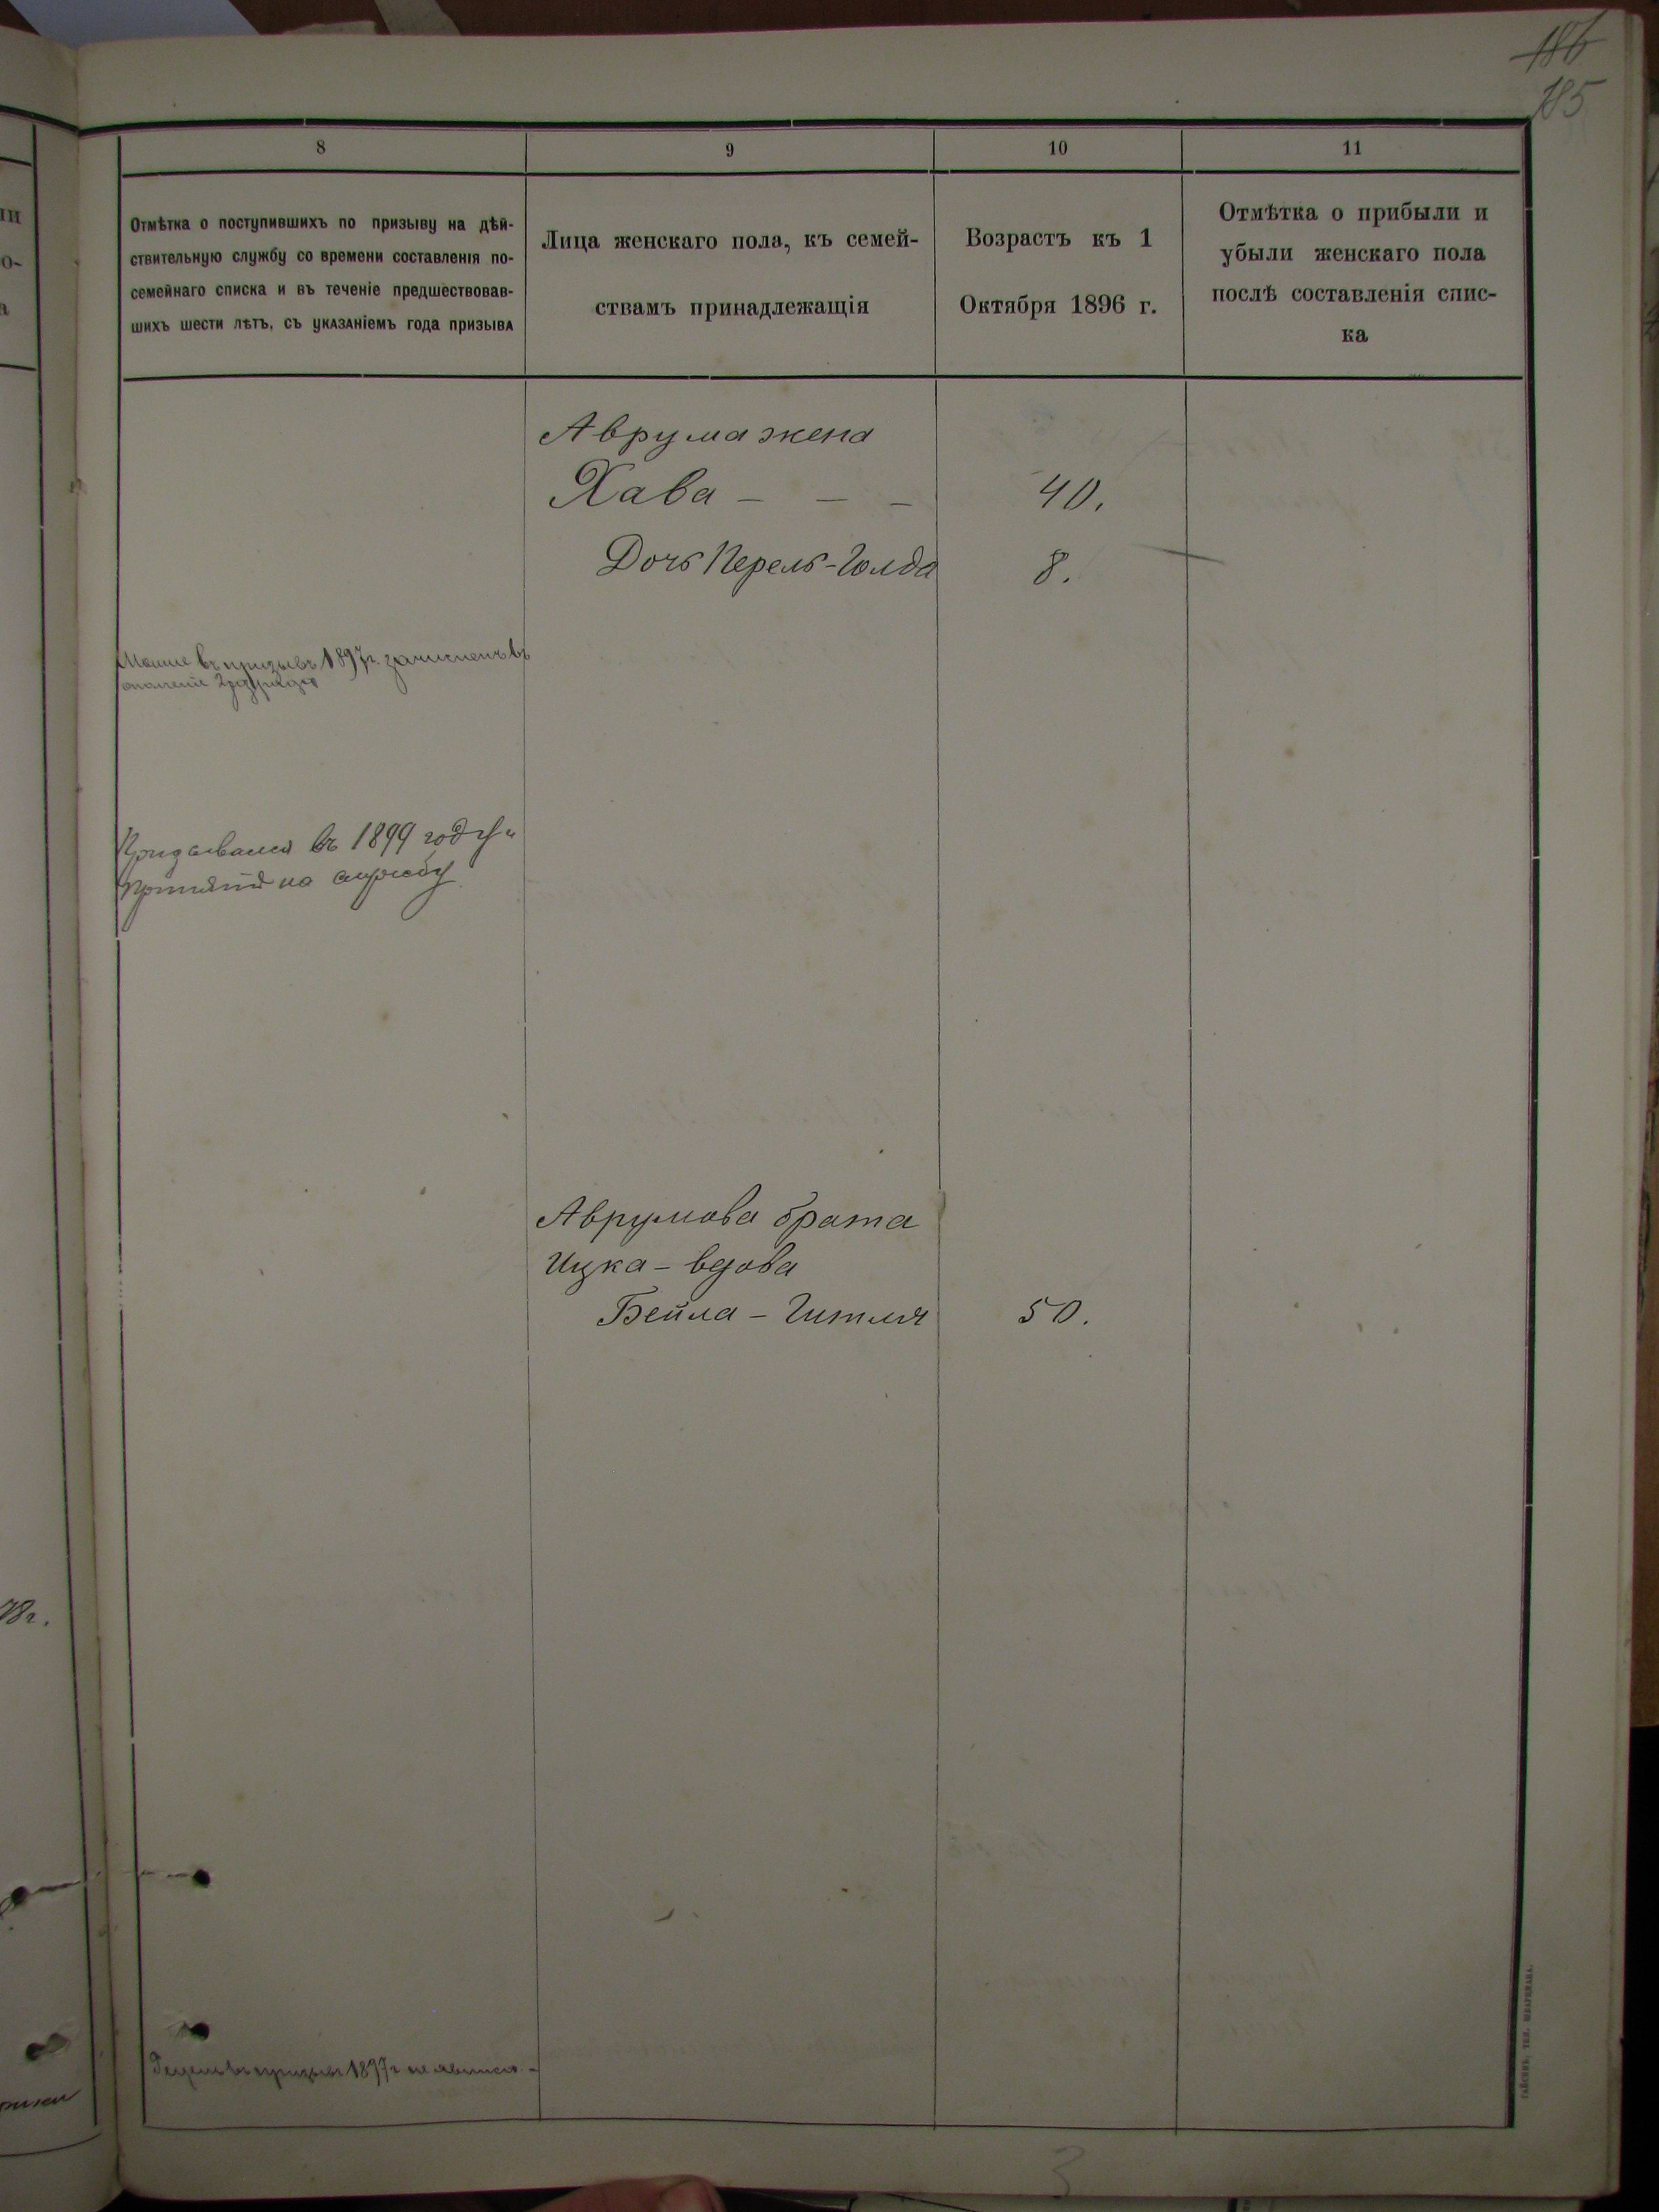 186
185
8
9
10
11
Отмѣтка о поступившихъ по призыву на дѣй-
ствительную службу со времени составленія по-
семейнаго списка и въ теченіе предшествовав-
шихъ шести лѣтъ, съ указаніемъ года призыва
Лица женскаго пола, къ семей-
ствамъ принадлежащія
Возрастъ къ 1
Октября 1896 г.
Отмѣтка о прибыли и
убыли женскаго пола
послѣ составленія спис-
ка
Аврума жена
Хава - - - 40.
Дочь Перель-Голда 8.
въ призывъ 1897г. зачисленъ въ
ополченіе
Призывался въ 1899 году и
принятъ на службу
Аврумова брата
Ицка - вдова
Бейла - Гитля 50.
въ призывъ 1897г не явился -